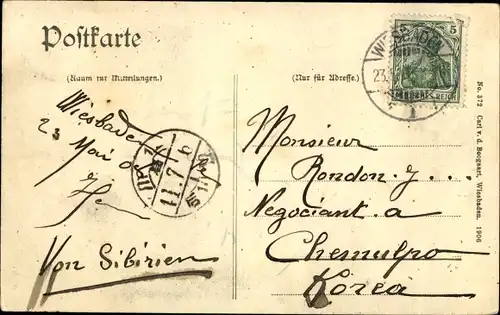 Postkarte
(Raum zur Mitteilungen.)
(Nur für Adresse.)
Wiesbaden
23 Mai
Von Sibirien
WIESBADEN
23.
1
5
DEUTSCHES REICH
11.7
Monsieur
Rondon
Negociant a
Chemulpo
Korea
No. 372 Carl v. d. Boogaart, Wiesbaden. 1906